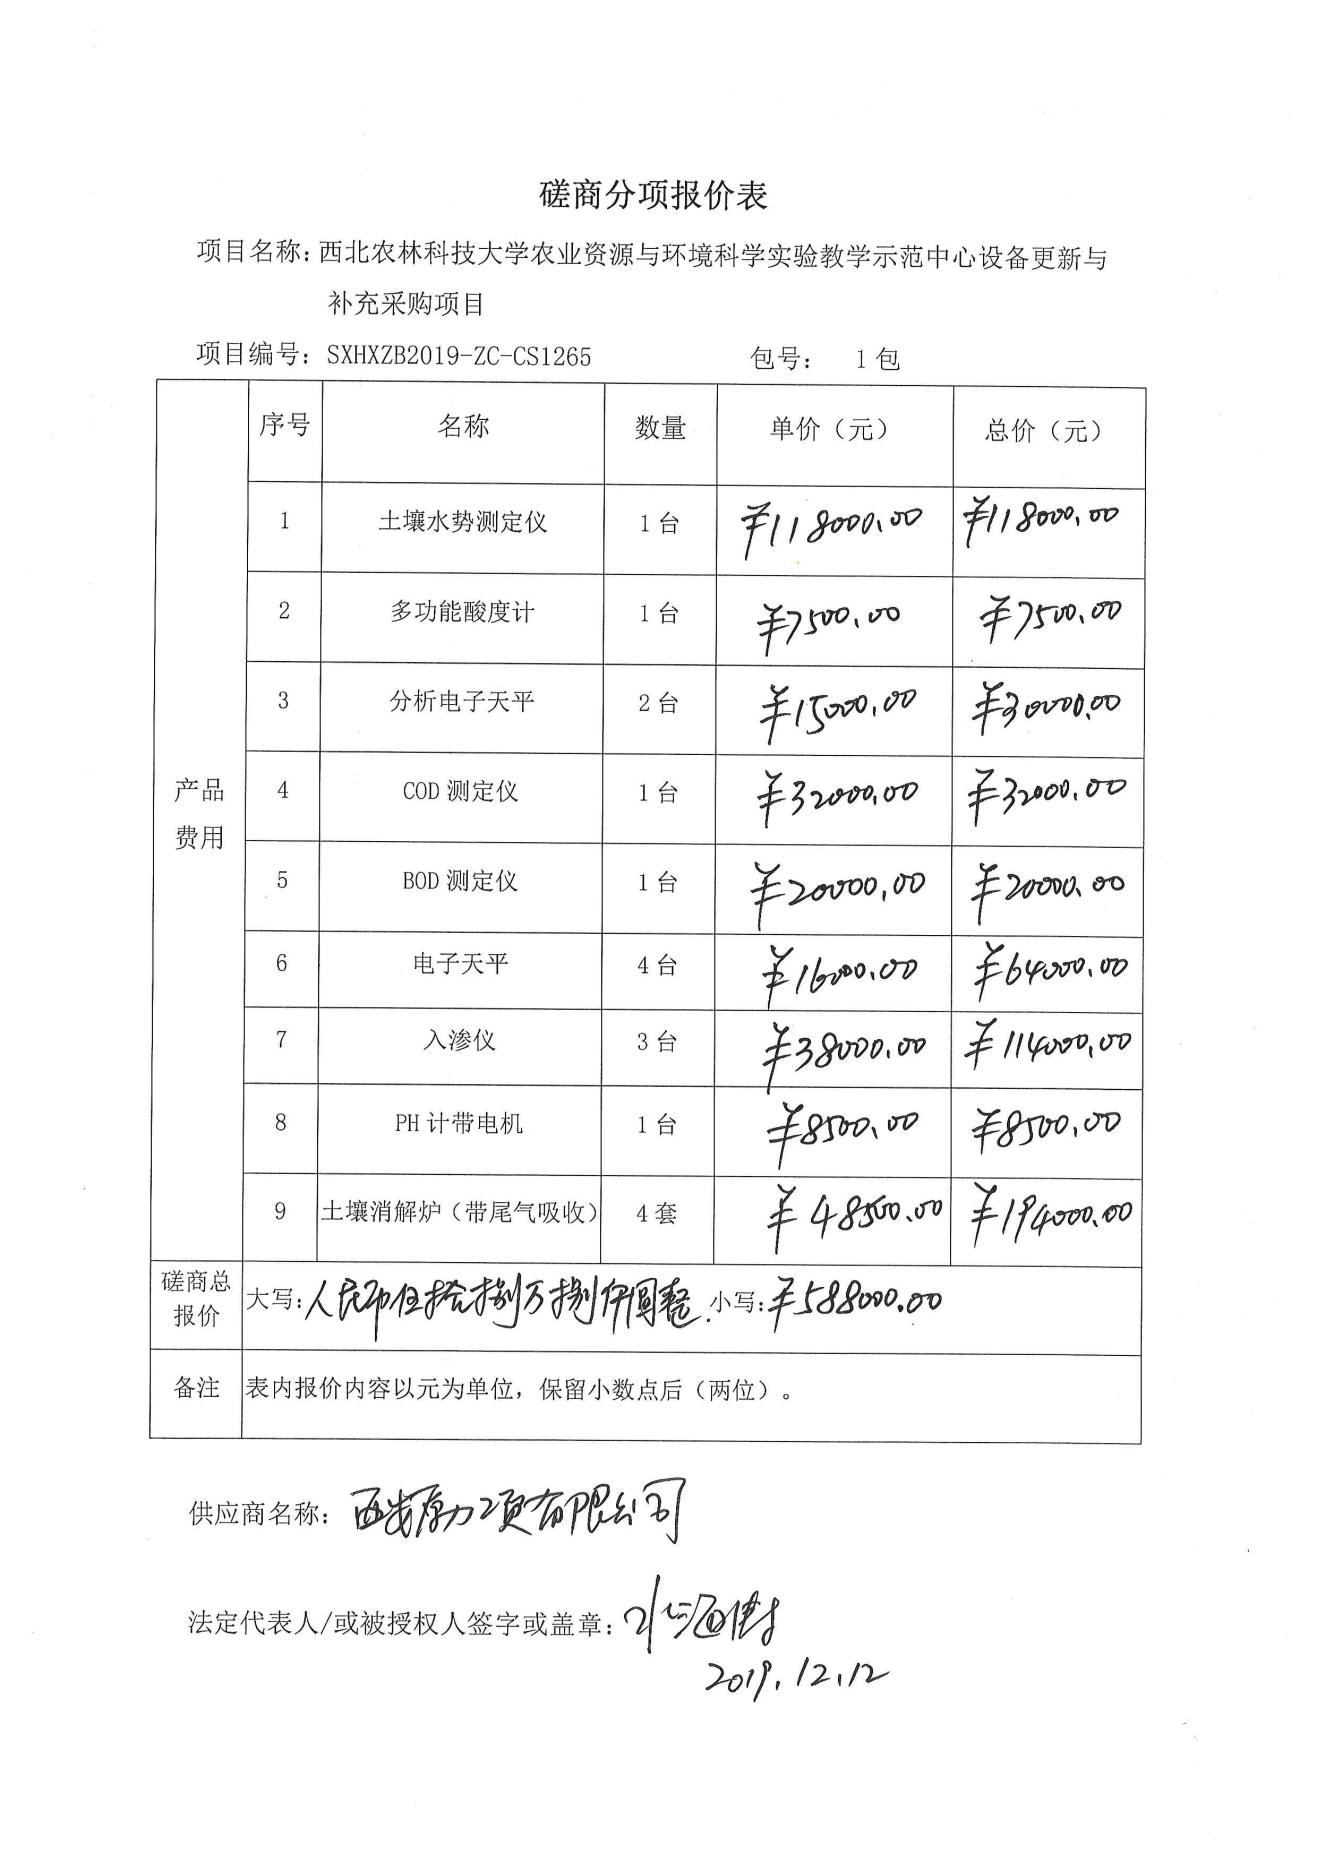 磋商分项报价表
项目名称：西北农林科技大学农业资源与环境科学实验教学示范中心设备更新与
补充采购项目
项目编号：SXHXZB2019-ZC-CS1265 包号： 1包
产品费用
序号 名称 数量 单价（元） 总价（元）
1 土壤水势测定仪 1台 ¥118000.00 ¥118000.00
2 多功能酸度计 1台 ¥7500.00 ¥7500.00
3 分析电子天平 2台 ¥15000.00 ¥30000.00
4 COD测定仪 1台 ¥32000.00 ¥32000.00
5 BOD测定仪 1台 ¥20000.00 ¥20000.00
6 电子天平 4台 ¥16000.00 ¥64000.00
7 入渗仪 3台 ¥38000.00 ¥114000.00
8 PH计带电机 1台 ¥8500.00 ¥8500.00
9 土壤消解炉（带尾气吸收） 4套 ¥48500.00 ¥194000.00
磋商总报价 大写：人民币伍拾捌万捌仟圆整. 小写：¥588000.00
备注 表内报价内容以元为单位，保留小数点后（两位）。
供应商名称： 有限公司
法定代表人/或被授权人签字或盖章：
2019.12.12